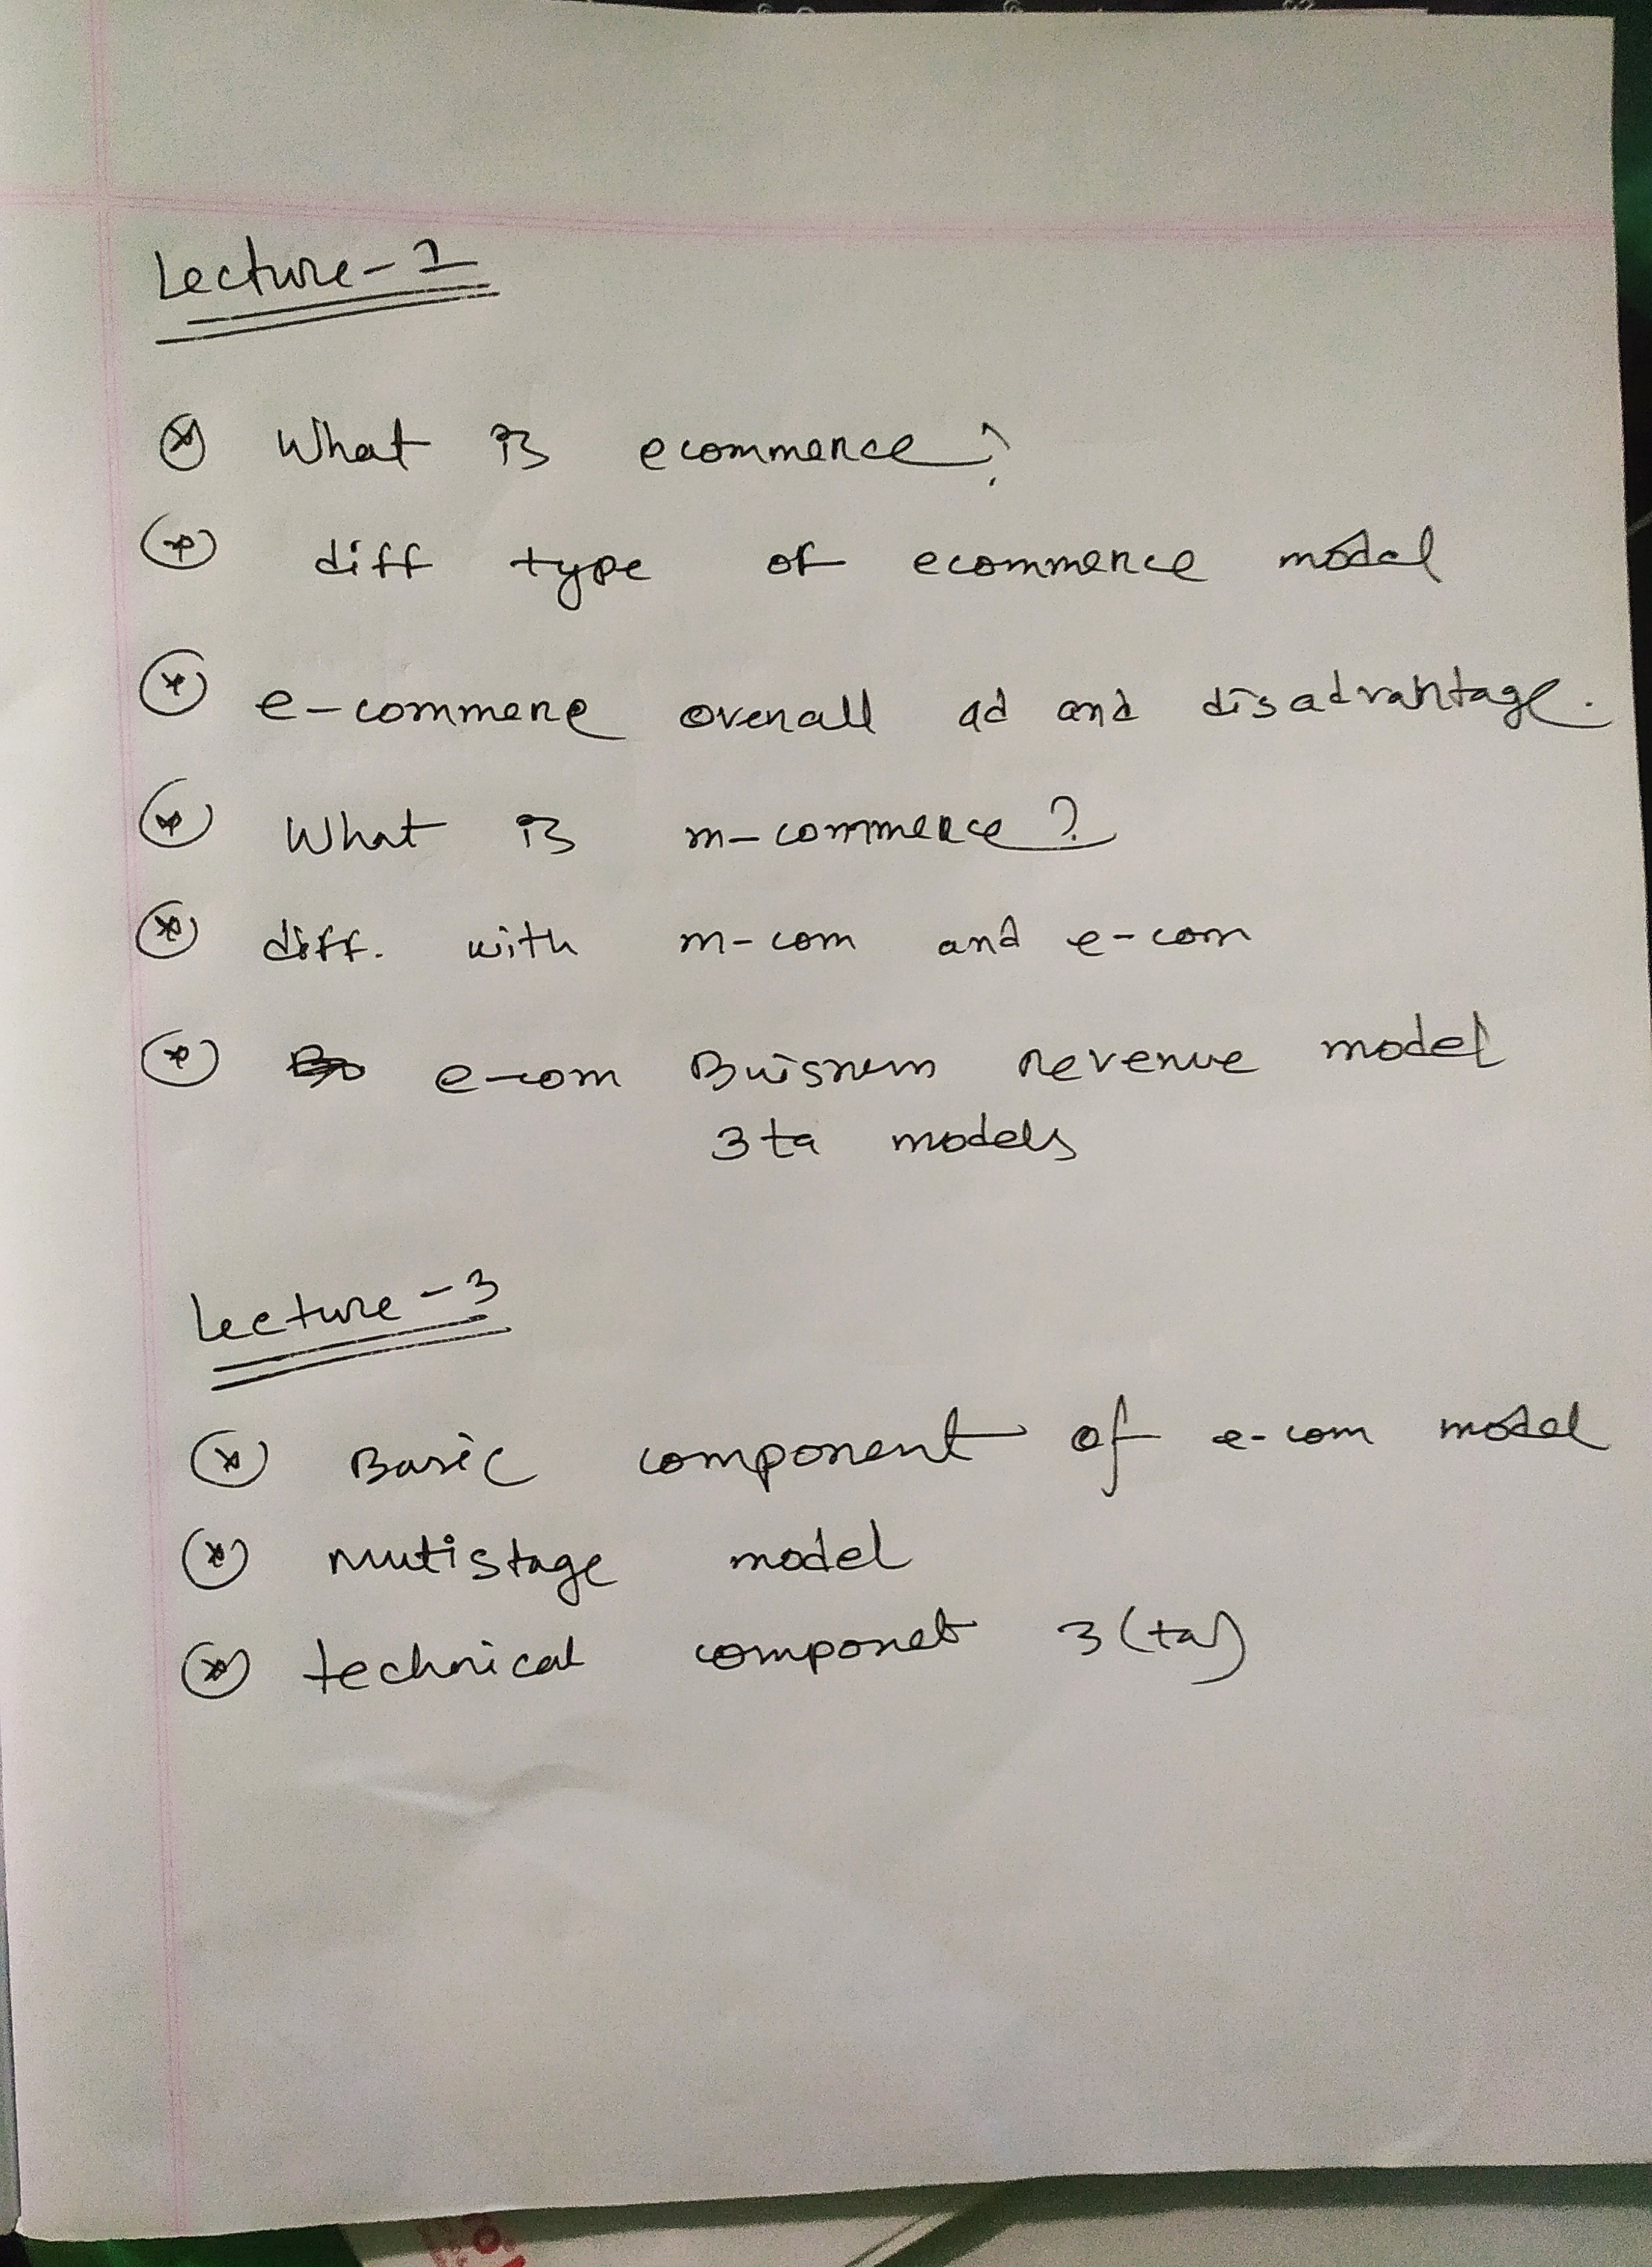 Lecture-1
What is ecommerce?
diff type of ecommerce model
e-commerce overall ad and disadvantage.
What is m-commerce?
diff. with m-com and e-com
e-com Buisness revenue model
3 ta models
Lecture-3
Basic component of e-com model
mutistage model
technical componet 3(ta)